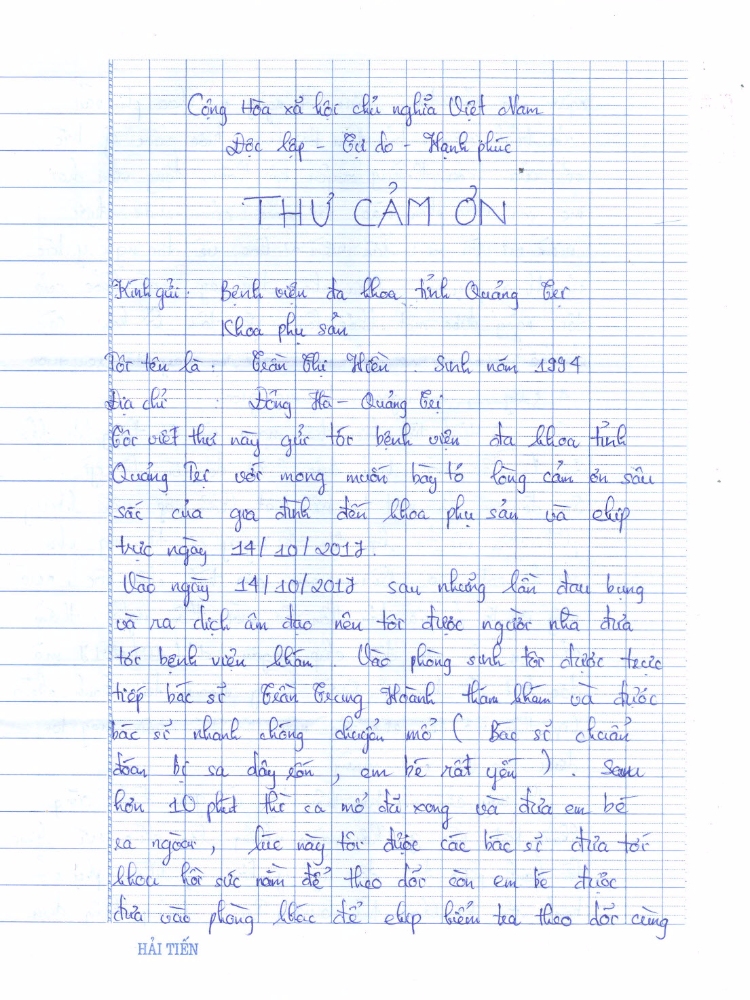 Cộng Hòa xả hộc chủ nghĩa Việt Nam
Độc lập - Tự do - Hạnh phúc
THƯ CẢM ƠN
Kính gửi: Bệnh viện đa khoa tỉnh Quảng Trị
Khoa phụ sản
Tôi tên là: Trần Thị Hiền. Sinh năm 1994
Địa chỉ : Đông Hà - Quảng Trị
Tôi viết thư này gửi tới bệnh viện đa khoa tỉnh
Quảng Trị với mong muốn bày tỏ lòng cảm ơn sâu
sắc của gia đình đến khoa phụ sản và ekip
trực ngày 14/10/2017.
Vào ngày 14/10/2017 sau những lần đau bụng
và ra dịch âm đạo nên tôi được người nhà đưa
tới bệnh viện khám. Vào phòng sinh tôi được trực
tiếp bác sĩ Trần Trung Hoành thăm khám và được
bác sĩ nhanh chóng chuyển mổ ( Bác sĩ chuẩn
đoán bị sa dây rốn, em bé rất yếu ). Sau
hơn 10 phút thì ca mổ đã xong và đưa em bé
ra ngoài, lúc này tôi được các bác sĩ đưa tới
khoa hồi sức nằm để theo dõi còn em bé được
đưa vào phòng khác để ekip kiểm tra theo dõi cùng
HẢI TIẾN